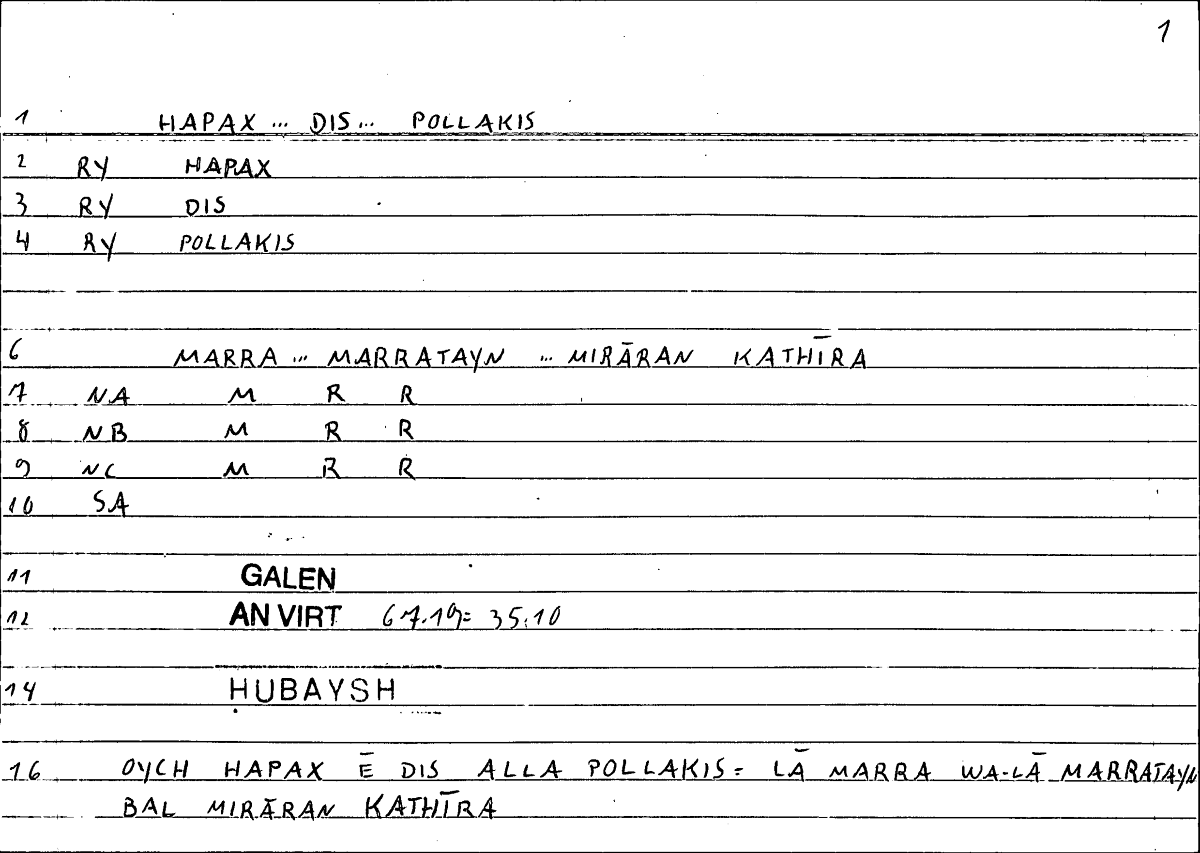 1
1 HAPAX ... DIS ... POLLAKIS
2 RY HAPAX
3 RY DIS
4 RY POLLAKIS
6 MARRA ... MARRATAYN ... MIRĀRAN KATHĪRA
7 NA M R R
8 NB M R R
9 NC M R R
10 SA
11 GALEN
12 AN VIRT 67.19= 35.10
14 HUBAYSH
16 OYCH HAPAX Ē DIS ALLA POLLAKIS = LĀ MARRA WA-LĀ MARRATAYN
BAL MIRĀRAN KATHĪRA